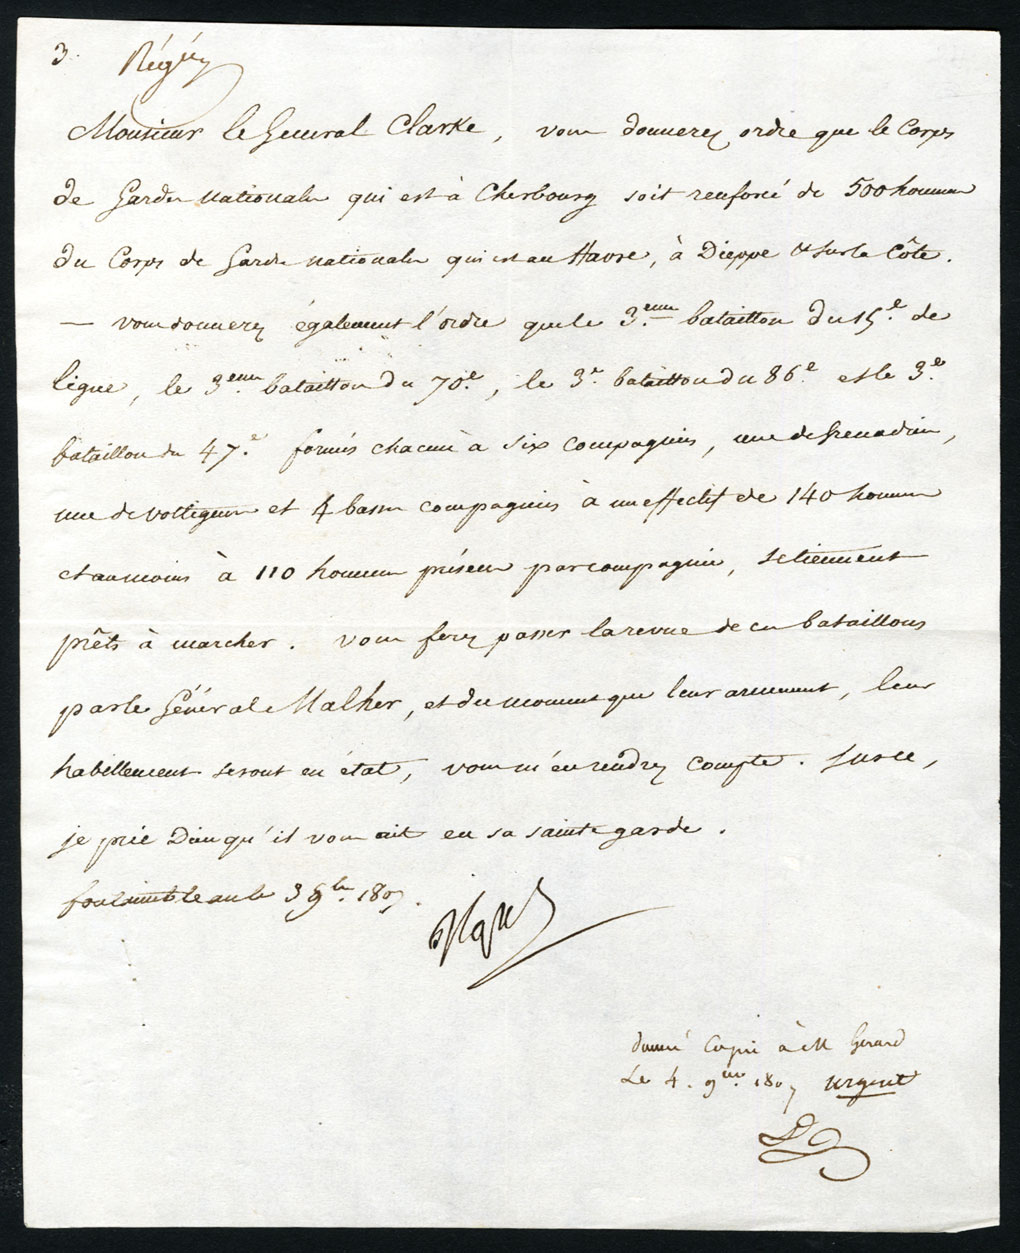 3.
Monsieur le Général Clarke, vous donnerez ordre que le Corps
de Gardes nationales qui est à Cherbourg soit renforcé de 500 hommes
du Corps de Gardes nationales qui est au Havre, à Dieppe & sur la Côte.
— vous donnerez également l'ordre que le 3.eme bataillon du 15.e de
ligne, le 3eme bataillon du 70.e, le 3.e bataillon du 86.e et le 3.e
bataillon du 47.e formés chacun à six compagnies, une de Grenadiers,
une de voltigeurs et 4 basses compagnies à un effectif de 140 hommes
et au moins à 110 hommes présens par compagnie, se tiennent
prêts à marcher. Vous ferez passer la revue de ces bataillons
par le Général Malher, et du moment que leur armement, leur
habillement seront en état, vous m'en rendrez compte. Sur ce,
je prie Dieu qu'il vous ait en sa sainte garde.
fontainebleau le 3 9bre. 1807.
donné Copie à M Gérard
Le 4. 9bre. 1807 urgent